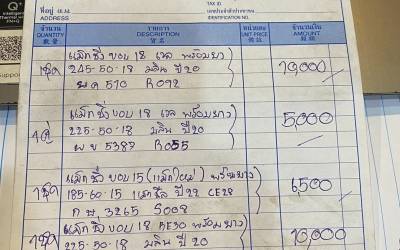 Q+
Intelligent
Thermal
EN+Q
Suppo
ที่อยู่ (ส.น.)
ADDRESS
TAX ID
เลขประจำตัวประชาชน
IDENTIFICATION NO.
จำนวน รายการ หน่วยละ จำนวนเงิน
QUANTITY DESCRIPTION UNIT PRICE AMOUNT
數量 貨名 價錢 銀額
1ชุด แม็กซิ่ง ขอบ 18 เวล พร้อมยาง 10,000
245-50-18 มลิน ปี20
พด 510 R092
4คู่ แม็กซิ่ง ขอบ 18 เวล พร้อมยาง 5,000
225-50-18 มลิน ปี20
พข 5387 R055
1ชุด แม็กซิ่ง ขอบ 15 (แม็กใหม่) พร้อมยาง 6,500
185-60-15 ปี22 CE28
กษ 3265 5008
1ชุด แม็กซิ่ง ขอบ 18 RE30 พร้อมยาง 10,000
225-50-18 มลิน ปี20